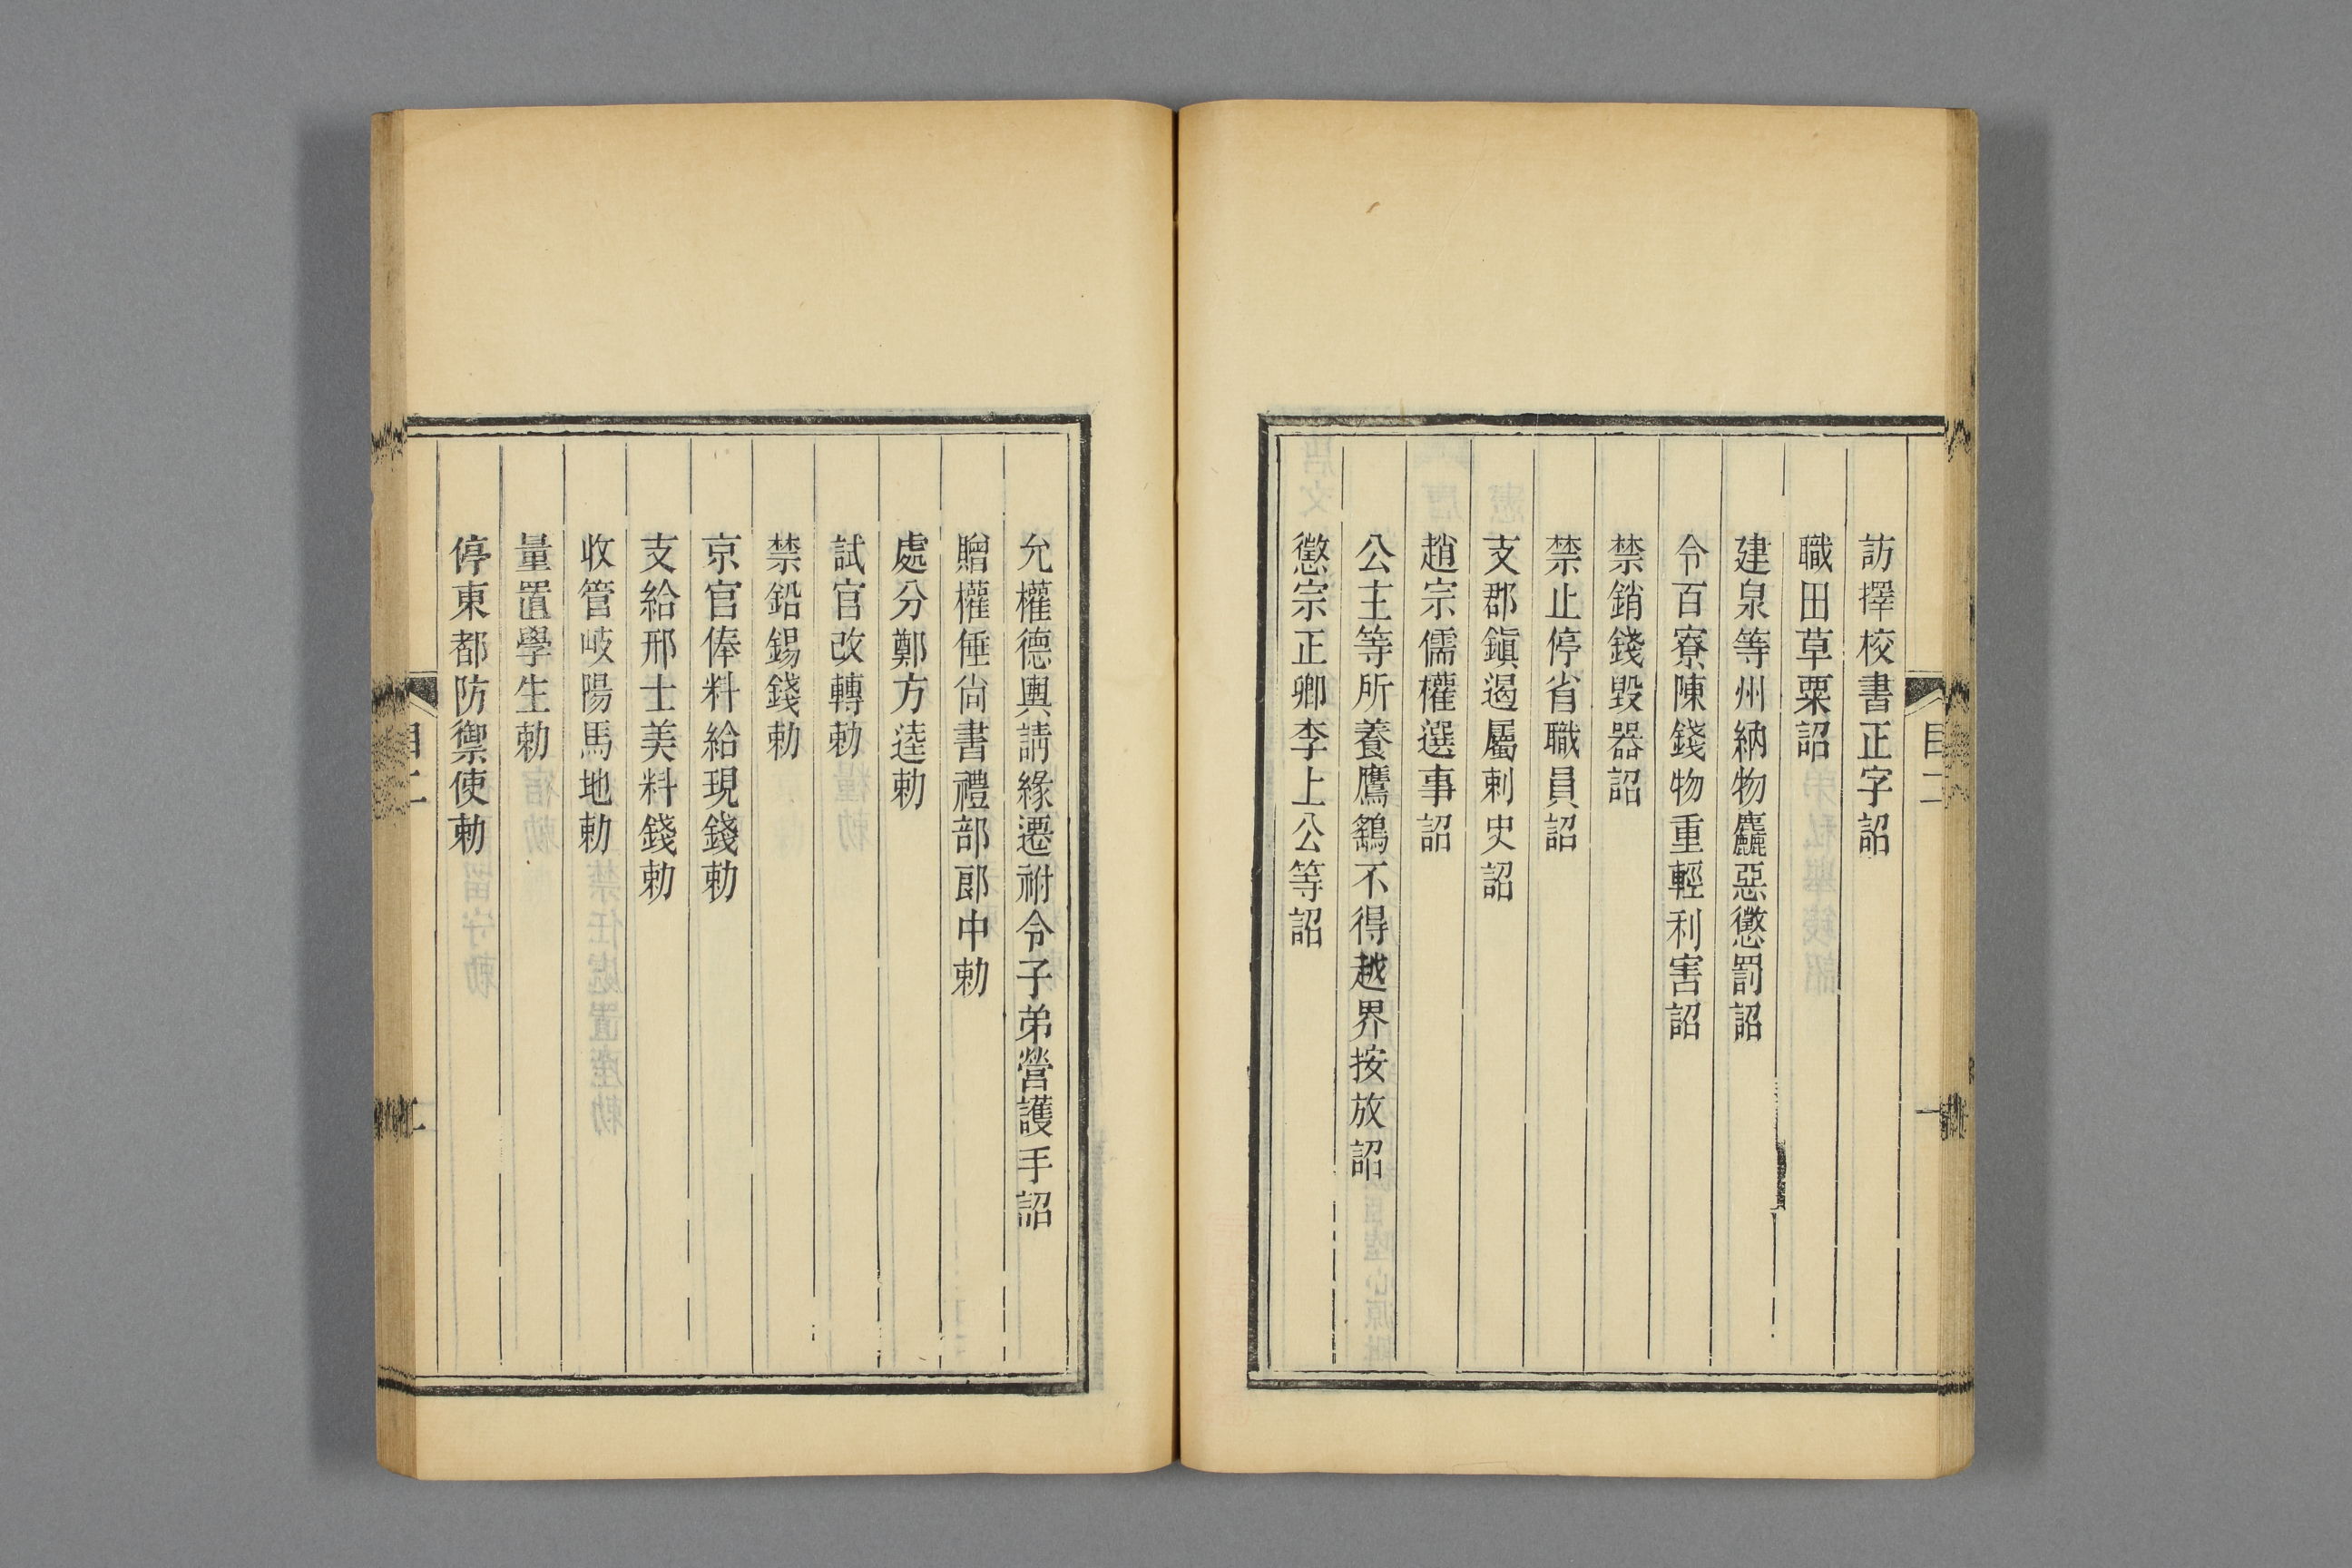 訪擇校書正字詔
職田草粟詔
建泉等州納物麤惡懲罰詔
令百寮陳錢物重輕利害詔
禁銷錢毀器詔
禁止停省職員詔
支郡鎭遏屬刺史詔
趙宗儒權選事詔
公主等所養鷹鷂不得越界按放詔
懲宗正卿李上公等詔
目二
一
允權德輿請緣遷祔令子弟營護手詔
贈權倕尙書禮部郎中勅
處分鄭方逵勅
試官改轉勅
禁鉛錫錢勅
京官俸料給現錢勅
支給邢士美料錢勅
收管岐陽馬地勅
量置學生勅
停東都防禦使勅
目二